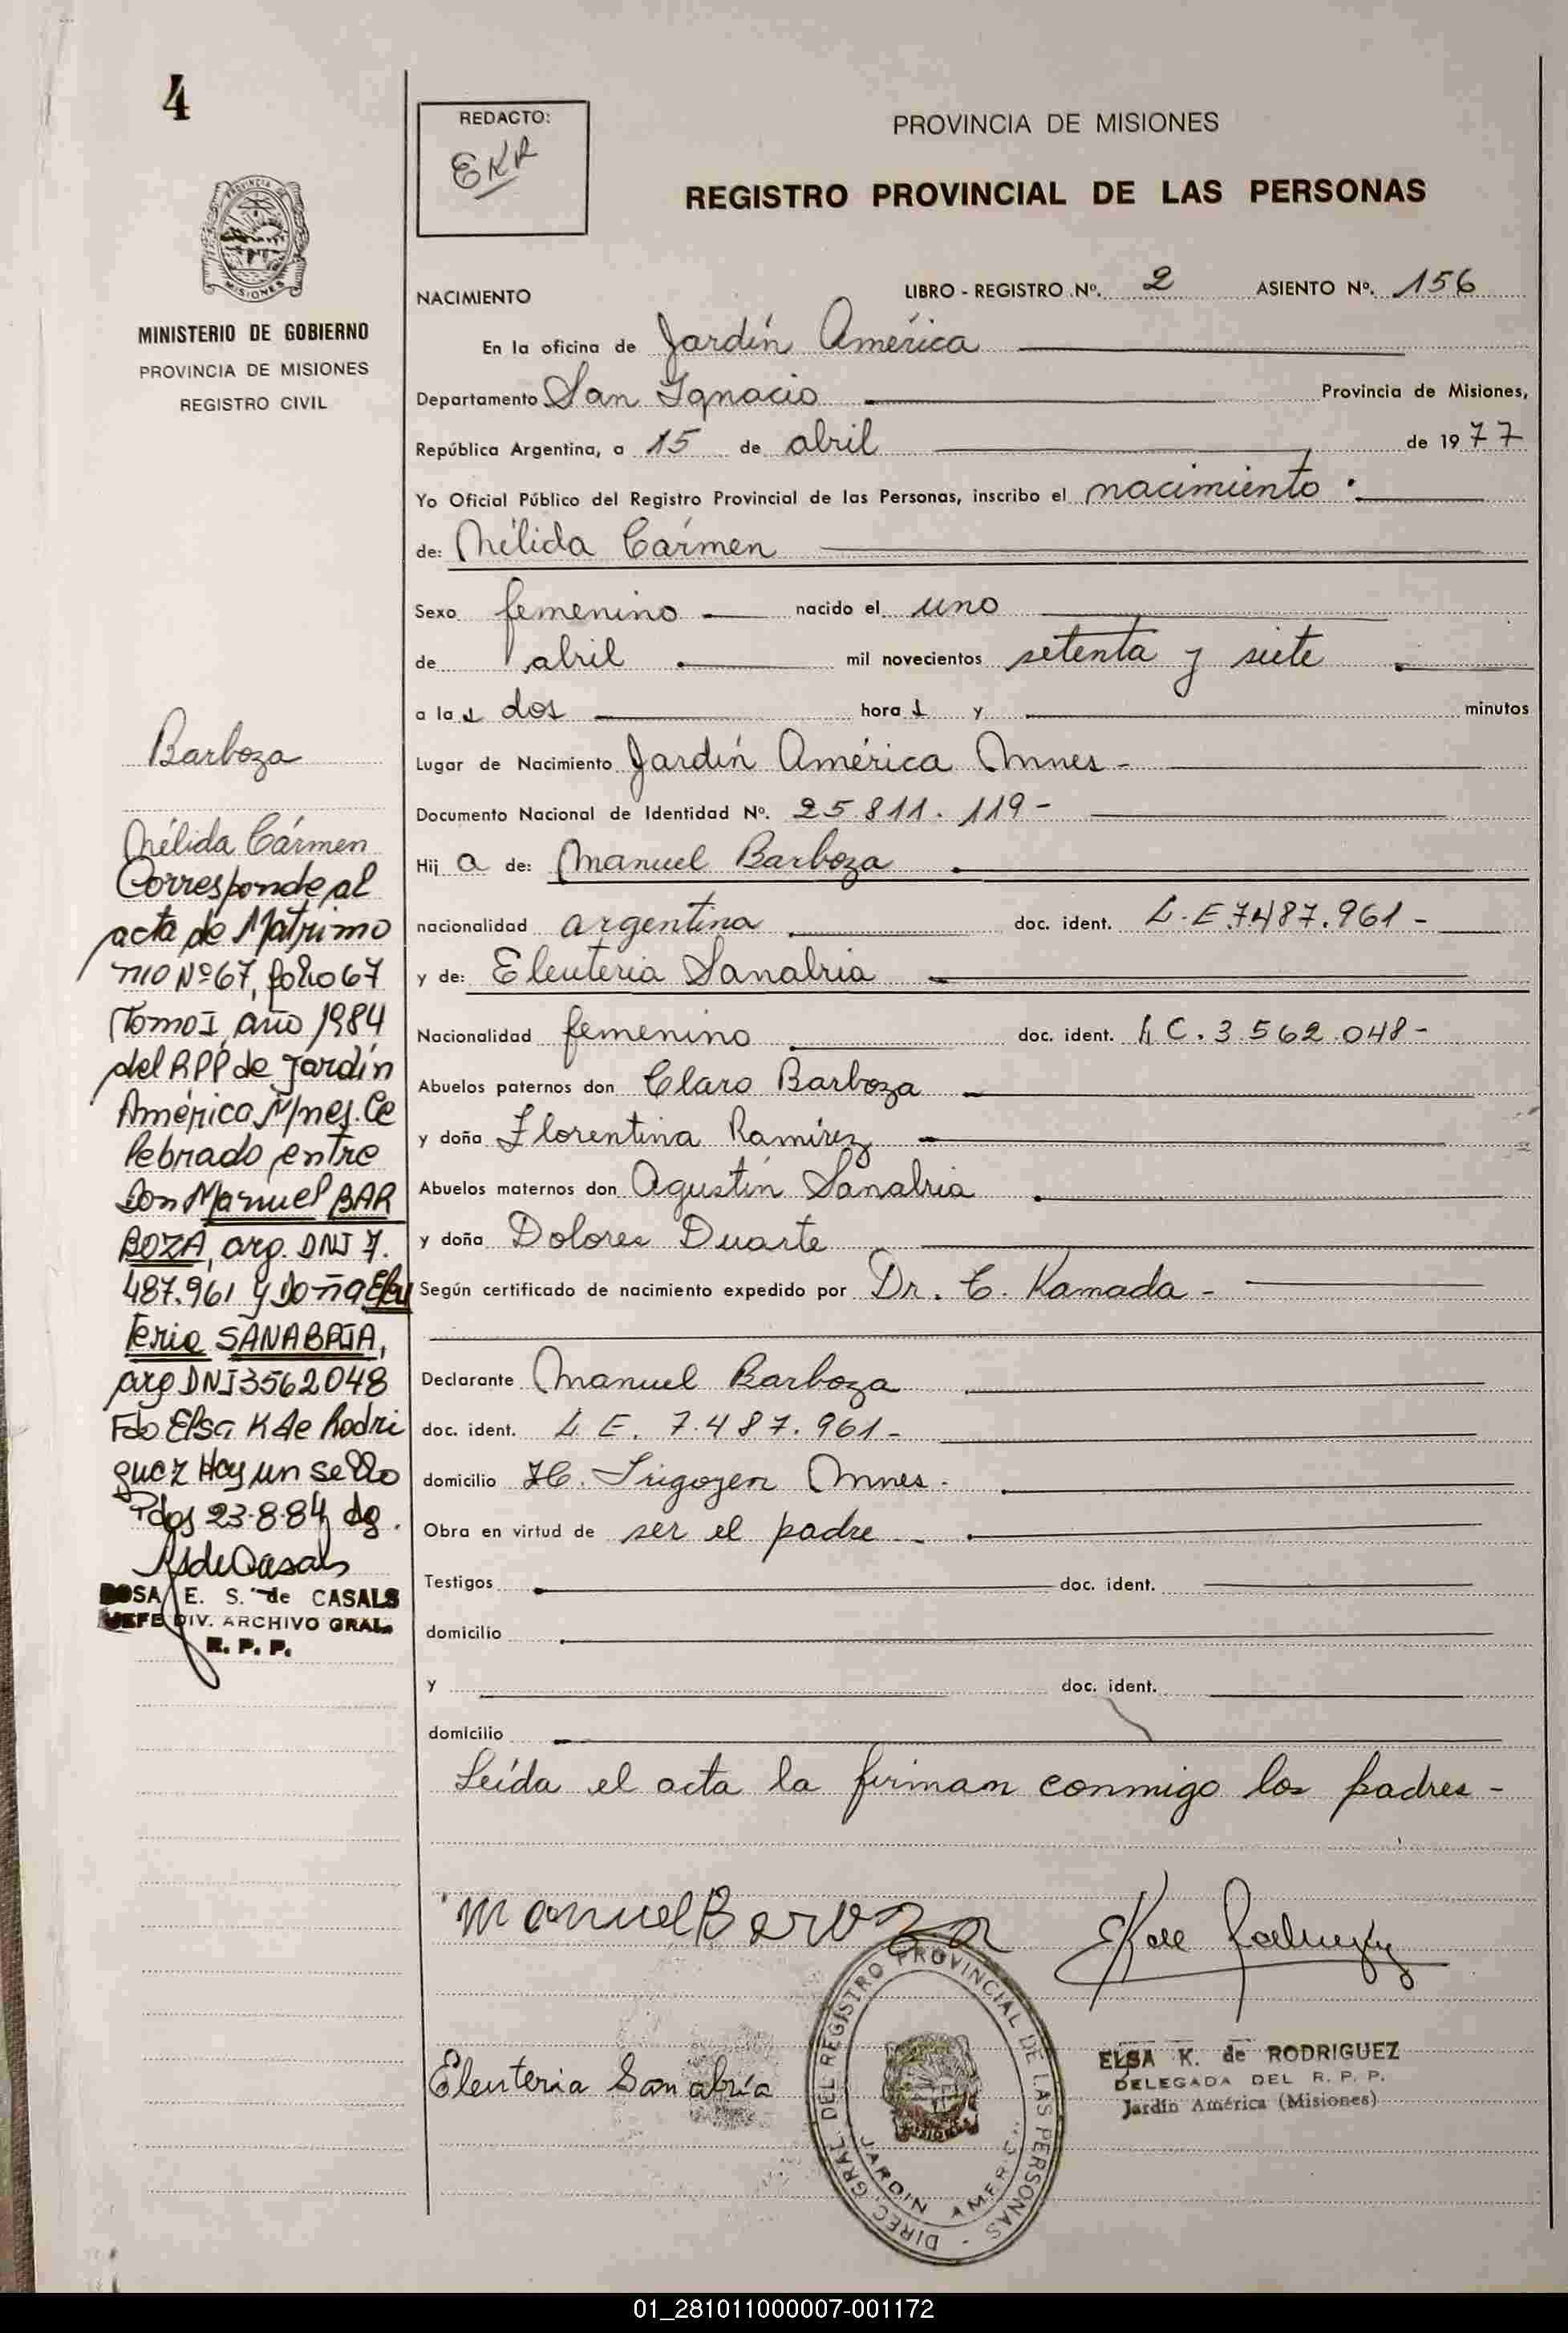 4
MINISTERIO DE GOBIERNO
PROVINCIA DE MISIONES
REGISTRO CIVIL
Barboza
Nélida Cármen
Corresponde al
acta de Matrimo
nio Nº 67, folio 67
Tomo I, año 1984
del RPP de Jardín
América Mnes. Ce
lebrado entre
Don Manuel BAR
BOZA, arg. DNI 7.
487.961 y Doña Eleu
teria SANABRIA,
arg DNI 3562048
Fdo Elsa K de Rodri
guez Hay un sello
Pdas 23-8-84 dg.
ROSA E. S. de CASALS
JEFE DIV. ARCHIVO GRAL.
R. P. P.
REDACTO:
EKR
PROVINCIA DE MISIONES
REGISTRO PROVINCIAL DE LAS PERSONAS
NACIMIENTO LIBRO - REGISTRO Nº. 2 ASIENTO Nº. 156
En la oficina de Jardín América
Departamento San Ignacio Provincia de Misiones,
República Argentina, a 15 de abril de 1977
Yo Oficial Público del Registro Provincial de las Personas, inscribo el nacimiento
de: Nélida Cármen
Sexo femenino nacido el uno
de abril mil novecientos setenta y siete
a las dos horas y minutos
Lugar de Nacimiento Jardín América Mnes -
Documento Nacional de Identidad Nº. 25.811.119 -
Hij a de: Manuel Barboza
nacionalidad argentina doc. ident. L.E 7.487.961 -
y de: Eleuteria Sanabria
Nacionalidad femenino doc. ident. L C. 3.562.048 -
Abuelos paternos don Claro Barboza
y doña Florentina Ramírez
Abuelos maternos don Agustín Sanabria
y doña Dolores Duarte
Según certificado de nacimiento expedido por Dr. C. Kamada -
Declarante Manuel Barboza
doc. ident. L E. 7.487.961 -
domicilio H. Irigoyen Mnes -
Obra en virtud de ser el padre -
Testigos doc. ident.
domicilio
y doc. ident.
domicilio
Leída el acta la firman conmigo los padres -
Manuel Barboza
Eleuteria Sanabria
DIREC. GRAL. DEL REGISTRO PROVINCIAL DE LAS PERSONAS -
JARDIN AMERICA
MISIONES
ELSA K. de RODRIGUEZ
DELEGADA DEL R. P. P.
Jardín América (Misiones)
01_281011000007-001172